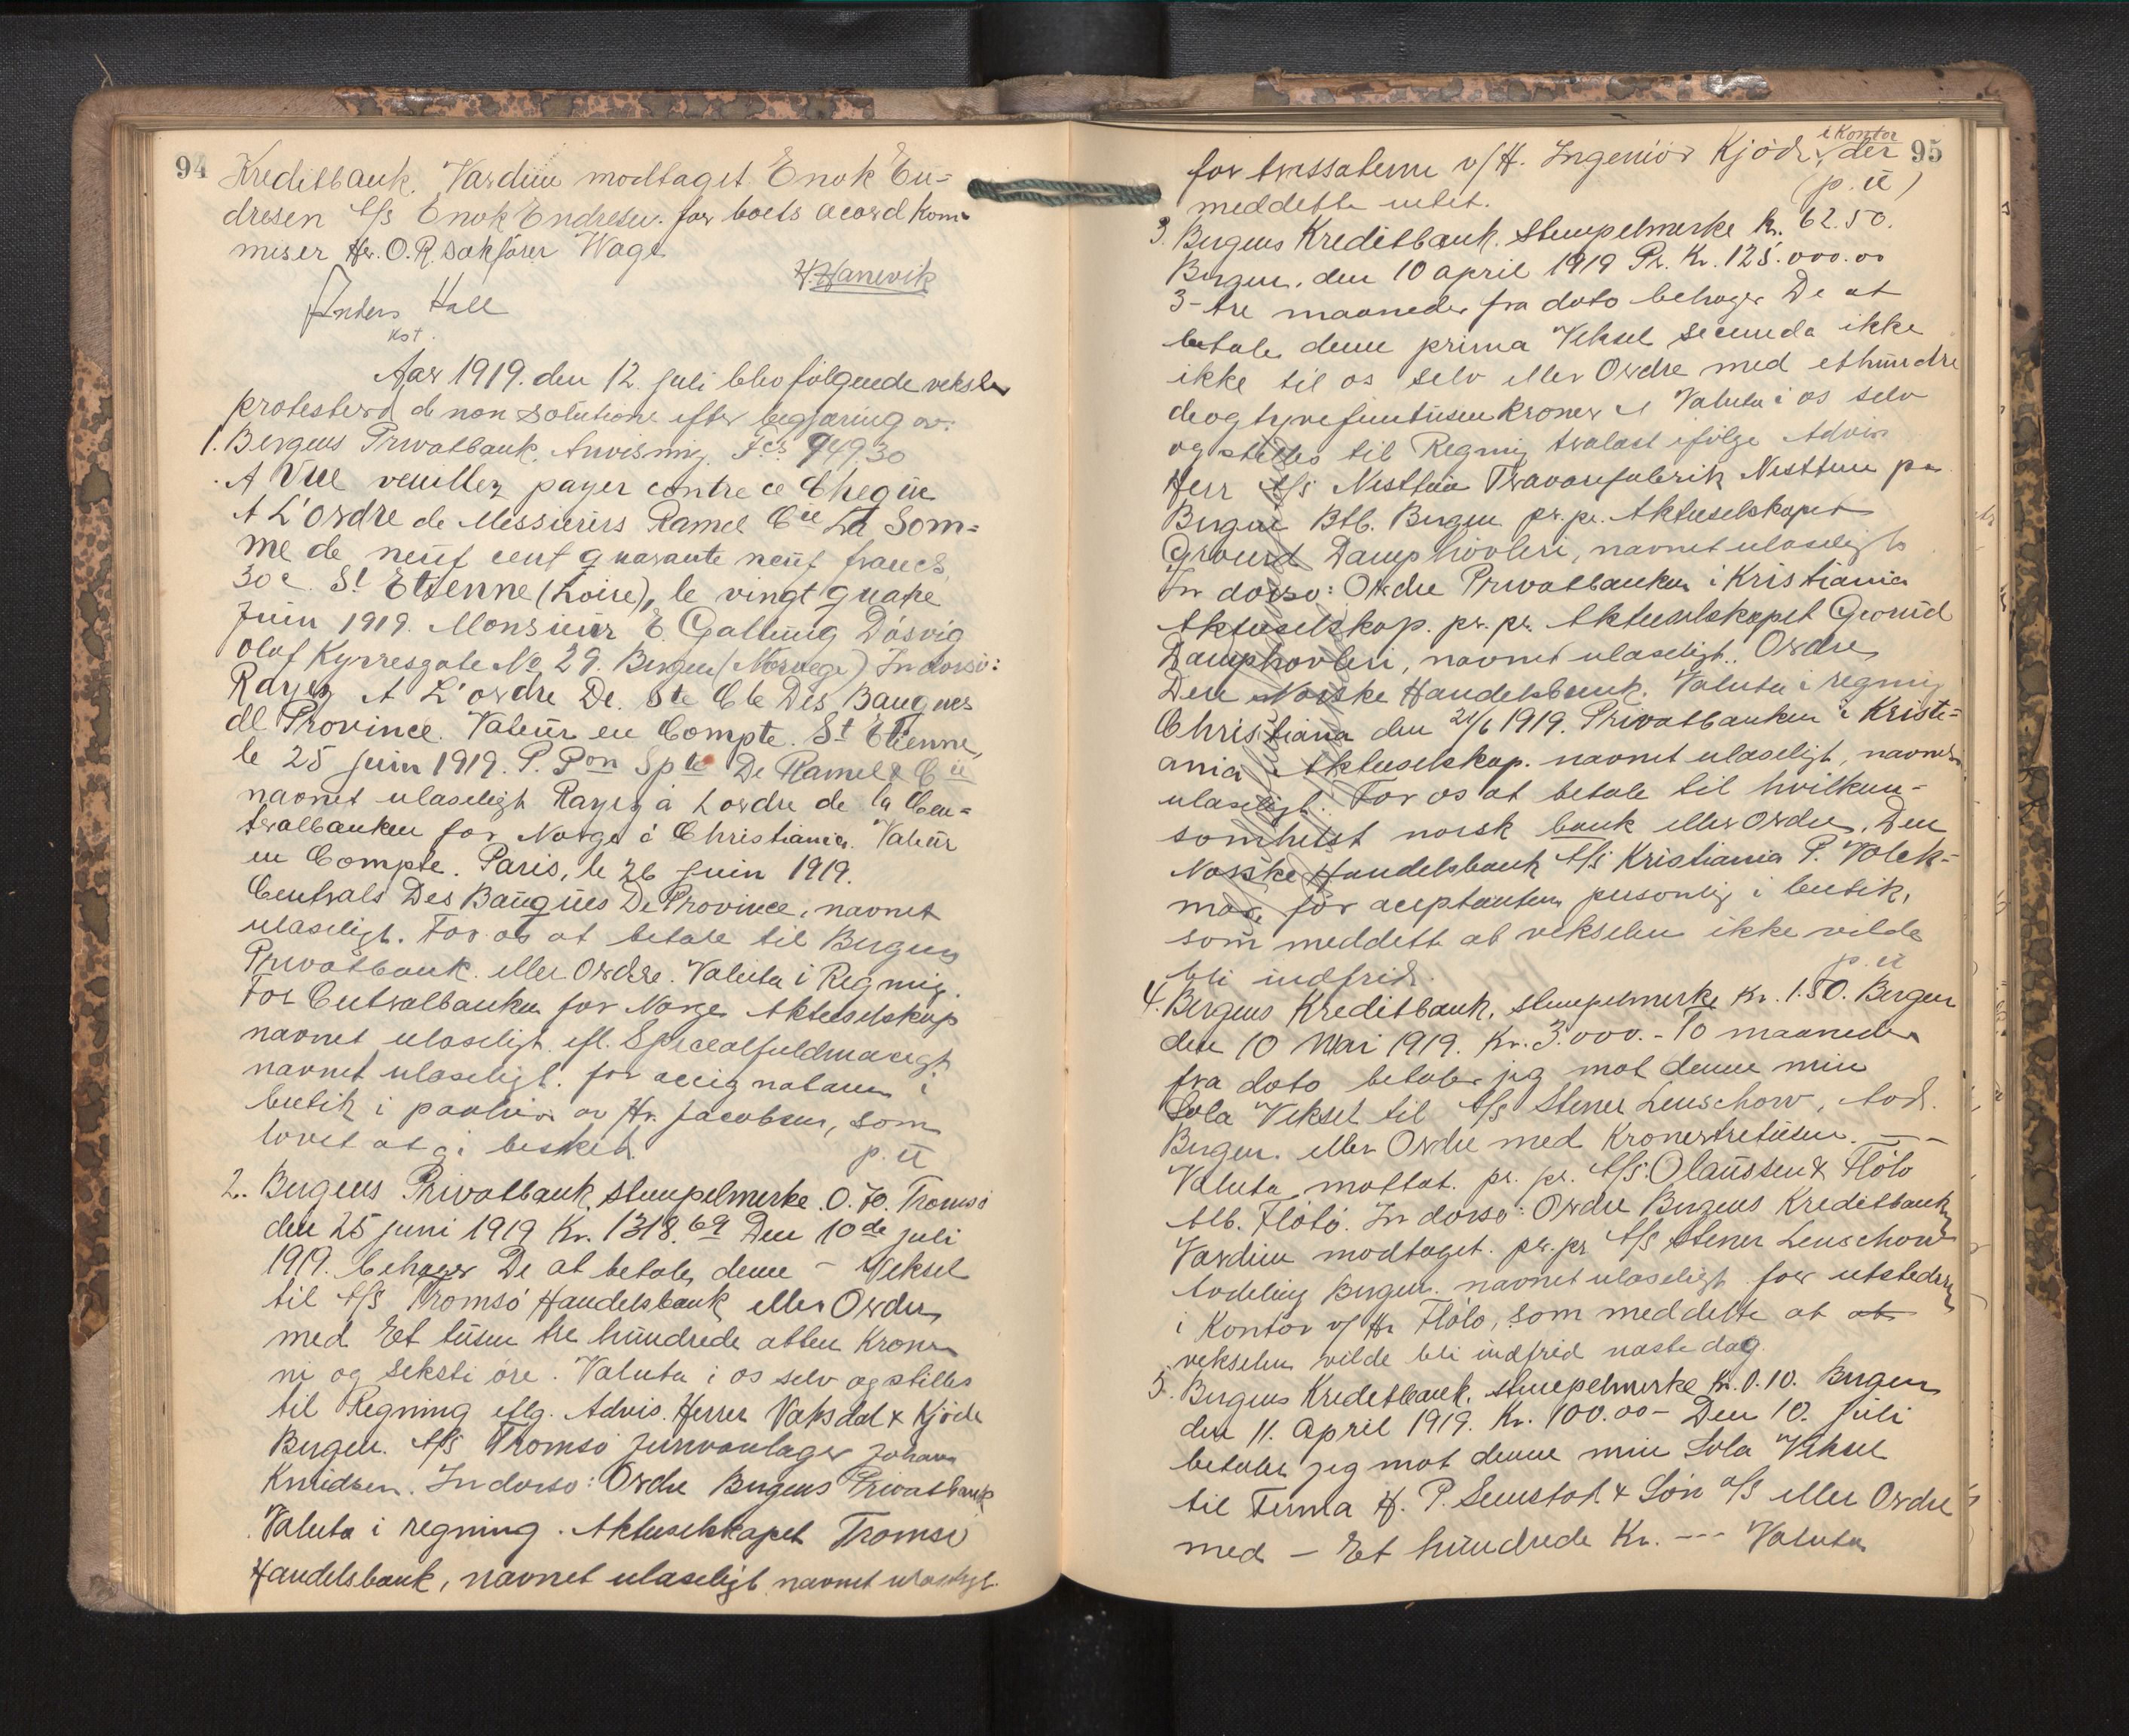 94
Kreditbank. Værdien modtaget Enok En-
dresen A/S Enok Endresen. for boets acord kom-
miser Hr. O.R. Sakfører Wage
H. Hanevik
Anders Hall
Kst.
Aar 1919. den 12. juli blev følgende veksler
protesterd de non solutione efter begjæring av:
1. Bergens Privatbank. Anvisning. Fcs 949.30
A Vue veuillez payer contre ce Chequê
A L'ordre de Messieurs Ramel Cie La Som-
me de neuf cent quarante neuf francs
30 c. St Etienne (Loire), le vingt quatre
Juin 1919. Monsieur E. Galtung Døsvig
Olaf Kyrresgate No 29. Bergen (Norvege) In dorso:
Payez A L'ordre De. Ste Cle Des Banques
de Province. Valeur en Compte. St Etienne,
le 25 juin 1919. P. Pon Sple De Ramel & Cie
navnet ulæseligt Payez á Lordre de la Cen-
tralbanken for Norge á Christiania. Valeur
en Compte. Paris, le 26 juin 1919.
Centrals Des Banques De Province, navnet
ulæseligt. For os at betale til Bergens
Privatbank. eller Ordre. Valuta i Regning.
For Centralbanken for Norge Aktieselskap
navnet ulæseligt. efl. Specialfuldmægt.
navnet ulæseligt. for assignatam i
butik i paahør av Hr. Jacobsen, som
lovet at gi besked.
p. u
2. Bergens Privatbank, stempelmerke 0.70. Tromsø
den 25 juni 1919 Kr. 1318.69 Den 10de juli
1919. behager De at betale, denne - Veksel
til A/S Tromsø Handelsbank eller Ordre,
med Et tusen tre hundrede atten Kroner
ni og seksti øre. Valuta i os selv og stilles
til Regning eflg. Advis. Herrer Vaksdal & Kjøde
Bergen. A/S Tromsø Jernvarelager Johan
Knudsen. In dorso: Ordre Bergens Privatbank
Valuta i regning. Aktieselskapet Tromsø
Handelsbank, navnet ulæseligt navnet ulæseligt.
95
i Kontor
for trassaterne v/ H. Ingeniør Kjøde, der
meddelte intet.
(p. u)
3. Bergens Kreditbank. Stempelmerke Kr. 62.50.
Bergen, den 10 april 1919 Pr. Kr. 125.000.00
3-tre maaneder fra dato behager De at
betale denne prima Veksel secunda ikke
ikke til os selv eller Ordre med ethundre
deogtyvefemtusen Kroner Valuta i os selv
og stilles til Regning trælast ifølge Advis
Herr A/S Nesttun Trævarefabrik Nesttun pr
Bergen Btb. Bergen pr. pr. Aktieselskapet
Groruds Damphøvleri, navnet ulæseligt
In dorso: Ordre Privatbanken i Kristiania
Aktieselskap. pr. pr. Aktieselskapet Grorud
Damphøvleri, navnet ulæseligt. Ordre
Den Norske Handelsbank. Valuta i regning
Christiania den 24/6 1919. Privatbanken i Kristi-
ania Aktieselskap. navnet ulæseligt, navnet
ulæseligt. For os at betale til hvilken-
somhelst norsk bank eller Ordre. Den
Norske Handelsbank A/S Kristiania P. Volck-
mar for acceptanten personlig i butik,
som meddelte at vekslen ikke vilde
bli indfrid.
p. u
4. Bergens Kreditbank, stempelmerke Kr. 1.50. Bergen
den 10 Mai 1919. Kr. 3.000.- To maaneder
fra dato betaler jeg mot denne min
Sola Veksel til A/S Stener Lenschow, Avd.
Bergen. eller Ordre med Kroner tretusen. — -
Valuta mottat. pr. pr. A/S. Olaussen & Flölo
Alb. Flölo. In dorso: Ordre Bergens Kreditbank,
Værdien modtaget. pr. pr A/S Stener Lenschow
Avdeling Bergen. navnet ulæseligt for utstederen
i Kontor v/ Hr Flölo, som meddelte at at
vekselen vilde bli indfrid næste dag.
5. Bergens Kreditbank, stempelmerke Kr. 0.10. Bergen
den 11. april 1919. Kr. 100.00- Den 10. juli
betaler jeg mot denne min Sola Veksel
til Firma H. P. Senstad & Søn A/S eller Ordre
med - Et hundrede Kr. --- Valuta